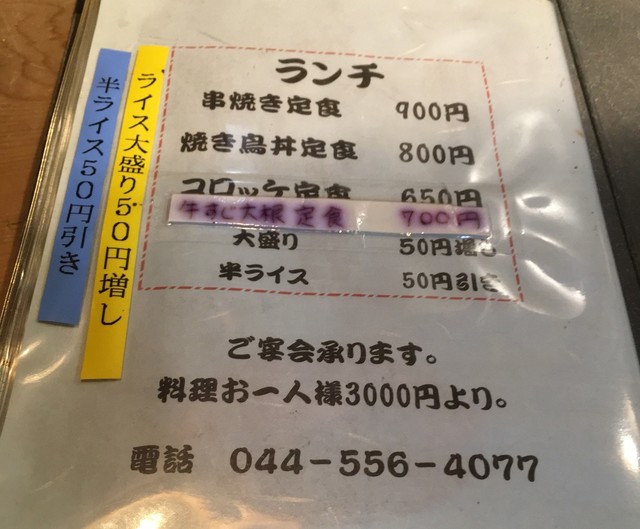 ランチ
串焼き定食 900円
焼き鳥丼定食 800円
コロッケ定食 650円
牛すじ大根定食 700円
大盛り 50円増し
半ライス 50円引き
ご宴会承ります。
料理お一人様3000円より。
電話 044-556-4077
ライス大盛り50円増し
半ライス50円引き